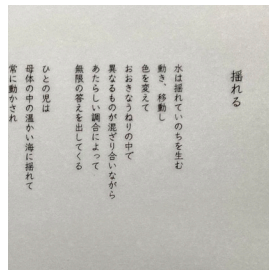 揺れる
水は揺れていのちを生む
動き、移動し
色を変えて
おおきなうねりの中で
異なるものが混ざり合いながら
あたらしい調合によって
無限の答えを出してくる
ひとの児は
母体の中の温かい海に揺れて
常に動かされ